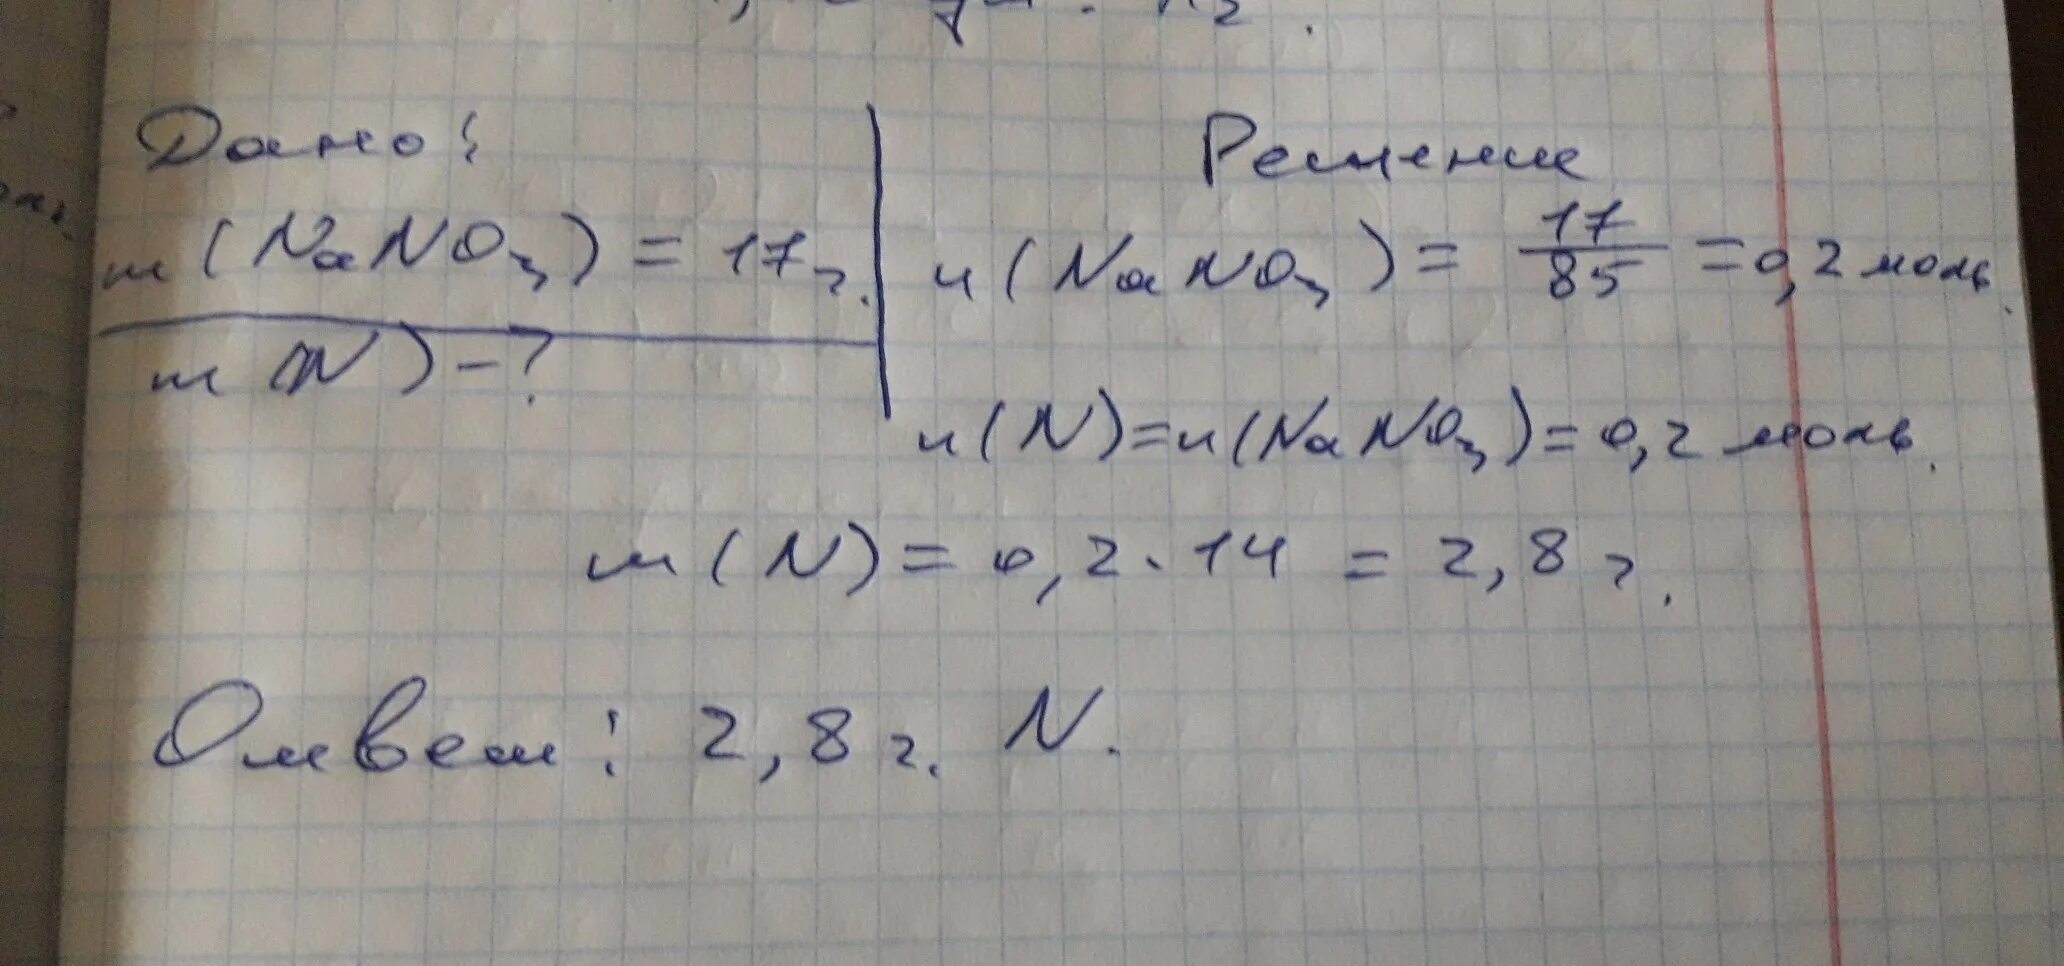 Дано:
m(NaNO3) = 17г.
m(N) - ?
Решение
n(NaNO3) = 17/85 = 0,2 моль.
n(N) = n(NaNO3) = 0,2 моль.
m(N) = 0,2·14 = 2,8 г.
Ответ: 2,8 г. N.